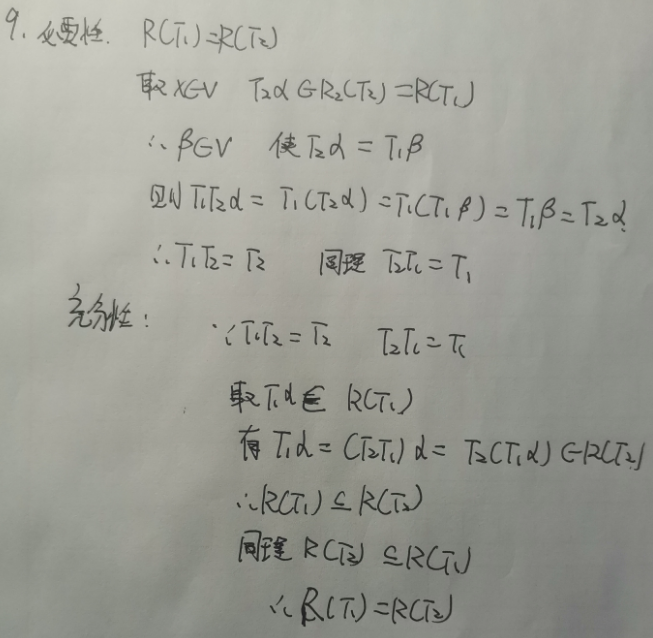 9. 必要性. R(T₁)=R(T₂)
取 x∈V T₂α∈R₂(T₂)=R(T₁)
∴ β∈V 使 T₂α = T₁β
则 T₁T₂α = T₁(T₂α) = T₁(T₁β) = T₁β = T₂α.
∴ T₁T₂ = T₂ 同理 T₂T₁ = T₁
充分性: ∵ T₁T₂ = T₂ T₂T₁ = T₁
取 T₁α ∈ R(T₁)
有 T₁α = (T₂T₁)α = T₂(T₁α) ∈ R(T₂)
∴ R(T₁) ⊆ R(T₂)
同理 R(T₂) ⊆ R(T₁)
∴ R(T₁) = R(T₂)